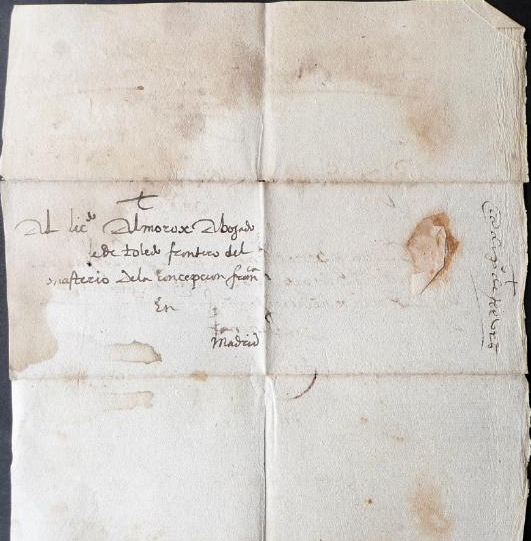 †
Al licdo Almorox Abogado
de Toledo frontero del
monasterio dela concepcion franca
En
Madrid